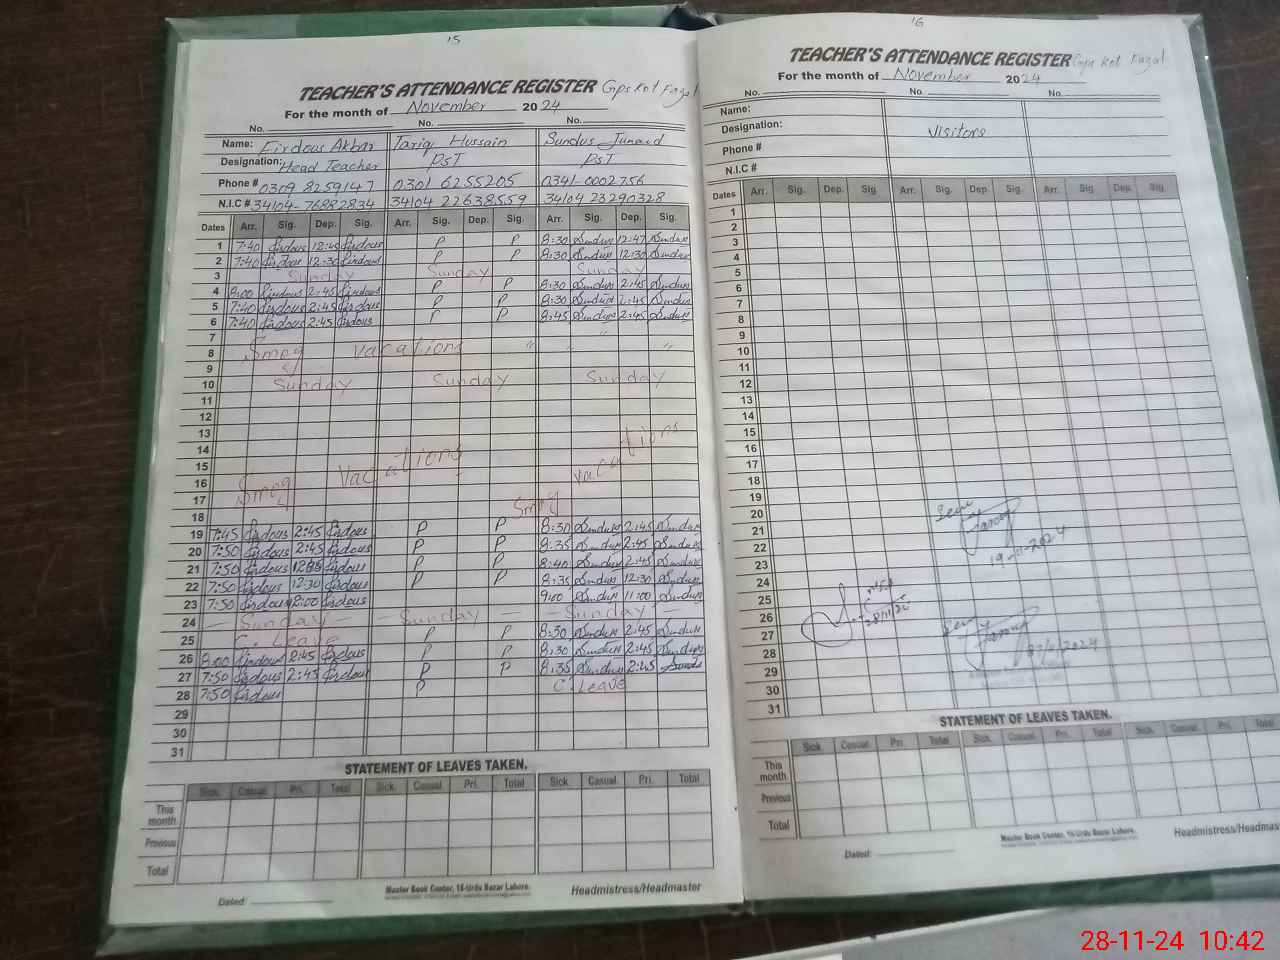 15
TEACHER'S ATTENDANCE REGISTER Gps Kot Fazal
For the month of November 2024
No. No. No.
Name: Firdous Akbar Tariq Hussain Sundus Junaid
Designation: Head Teacher PST PST
Phone # 0309 8259147 0301 6255205 0341-0002756
N.I.C # 34104-76882834 34104 22638559 34104 23290328
Dates Arr. Sig. Dep. Sig. Arr. Sig. Dep. Sig. Arr. Sig. Dep. Sig.
1 7:40 firdous 12:45 firdous P P 8:30 Sundus 12:47 Sundus
2 7:40 firdous 12:30 firdous P P 8:30 Sundus 12:30 Sundus
3 Sunday Sunday Sunday
4 8:00 firdous 2:45 firdous P P 8:30 Sundus 2:45 Sundus
5 7:40 firdous 2:45 firdous P P 8:30 Sundus 2:45 Sundus
6 7:40 firdous 2:45 firdous P P 8:45 Sundus 2:45 Sundus
7
8 Smog vacations " " "
9
10 Sunday Sunday Sunday
11
12
13
14
15
16 Smog Vacations vacations
17 Smog
18
19 7:45 firdous 2:45 firdous P P 8:30 Sundus 2:45 Sundus
20 7:50 firdous 2:45 firdous P P 8:35 Sundus 2:45 Sundus
21 7:50 firdous firdous P P 8:40 Sundus 2:45 Sundus
22 7:50 firdous 12:30 firdous P P 8:35 Sundus 12:30 Sundus
23 7:50 firdous 8:00 firdous 9:00 Sundus 11:00 Sundus
24 - Sunday - - Sunday - - Sunday -
25 C. Leave P P 8:30 Sundus 2:45 Sundus
26 8:00 firdous 2:45 firdous P P 8:30 Sundus 2:45 Sundus
27 7:50 firdous 2:45 firdous P P 8:35 Sundus 2:45 Sundus
28 7:50 firdous P C. Leave
29
30
31
STATEMENT OF LEAVES TAKEN.
Sick. Casual. Pri. Total Sick. Casual. Pri. Total Sick. Casual. Pri. Total
This month
Previous
Total
Master Book Center, 16-Urdu Bazar Lahore.
Dated: Headmistress/Headmaster
16
TEACHER'S ATTENDANCE REGISTER Gps Kot Fazal
For the month of November 2024
No. No. No.
Name:
Designation: Visitors
Phone #
N.I.C #
Dates Arr. Sig. Dep. Sig. Arr. Sig. Dep. Sig. Arr. Sig. Dep. Sig.
1
2
3
4
5
6
7
8
9
10
11
12
13
14
15
16
17
18
19
20 Seen
21
22
23
24
25
26
27 Seen
28
29
30
31
STATEMENT OF LEAVES TAKEN.
Sick. Casual. Pri. Total Sick. Casual. Pri. Total Sick. Casual. Pri. Total
This month
Previous
Total
Master Book Center, 16-Urdu Bazar Lahore.
Dated: Headmistress/Headmas
28-11-24 10:42